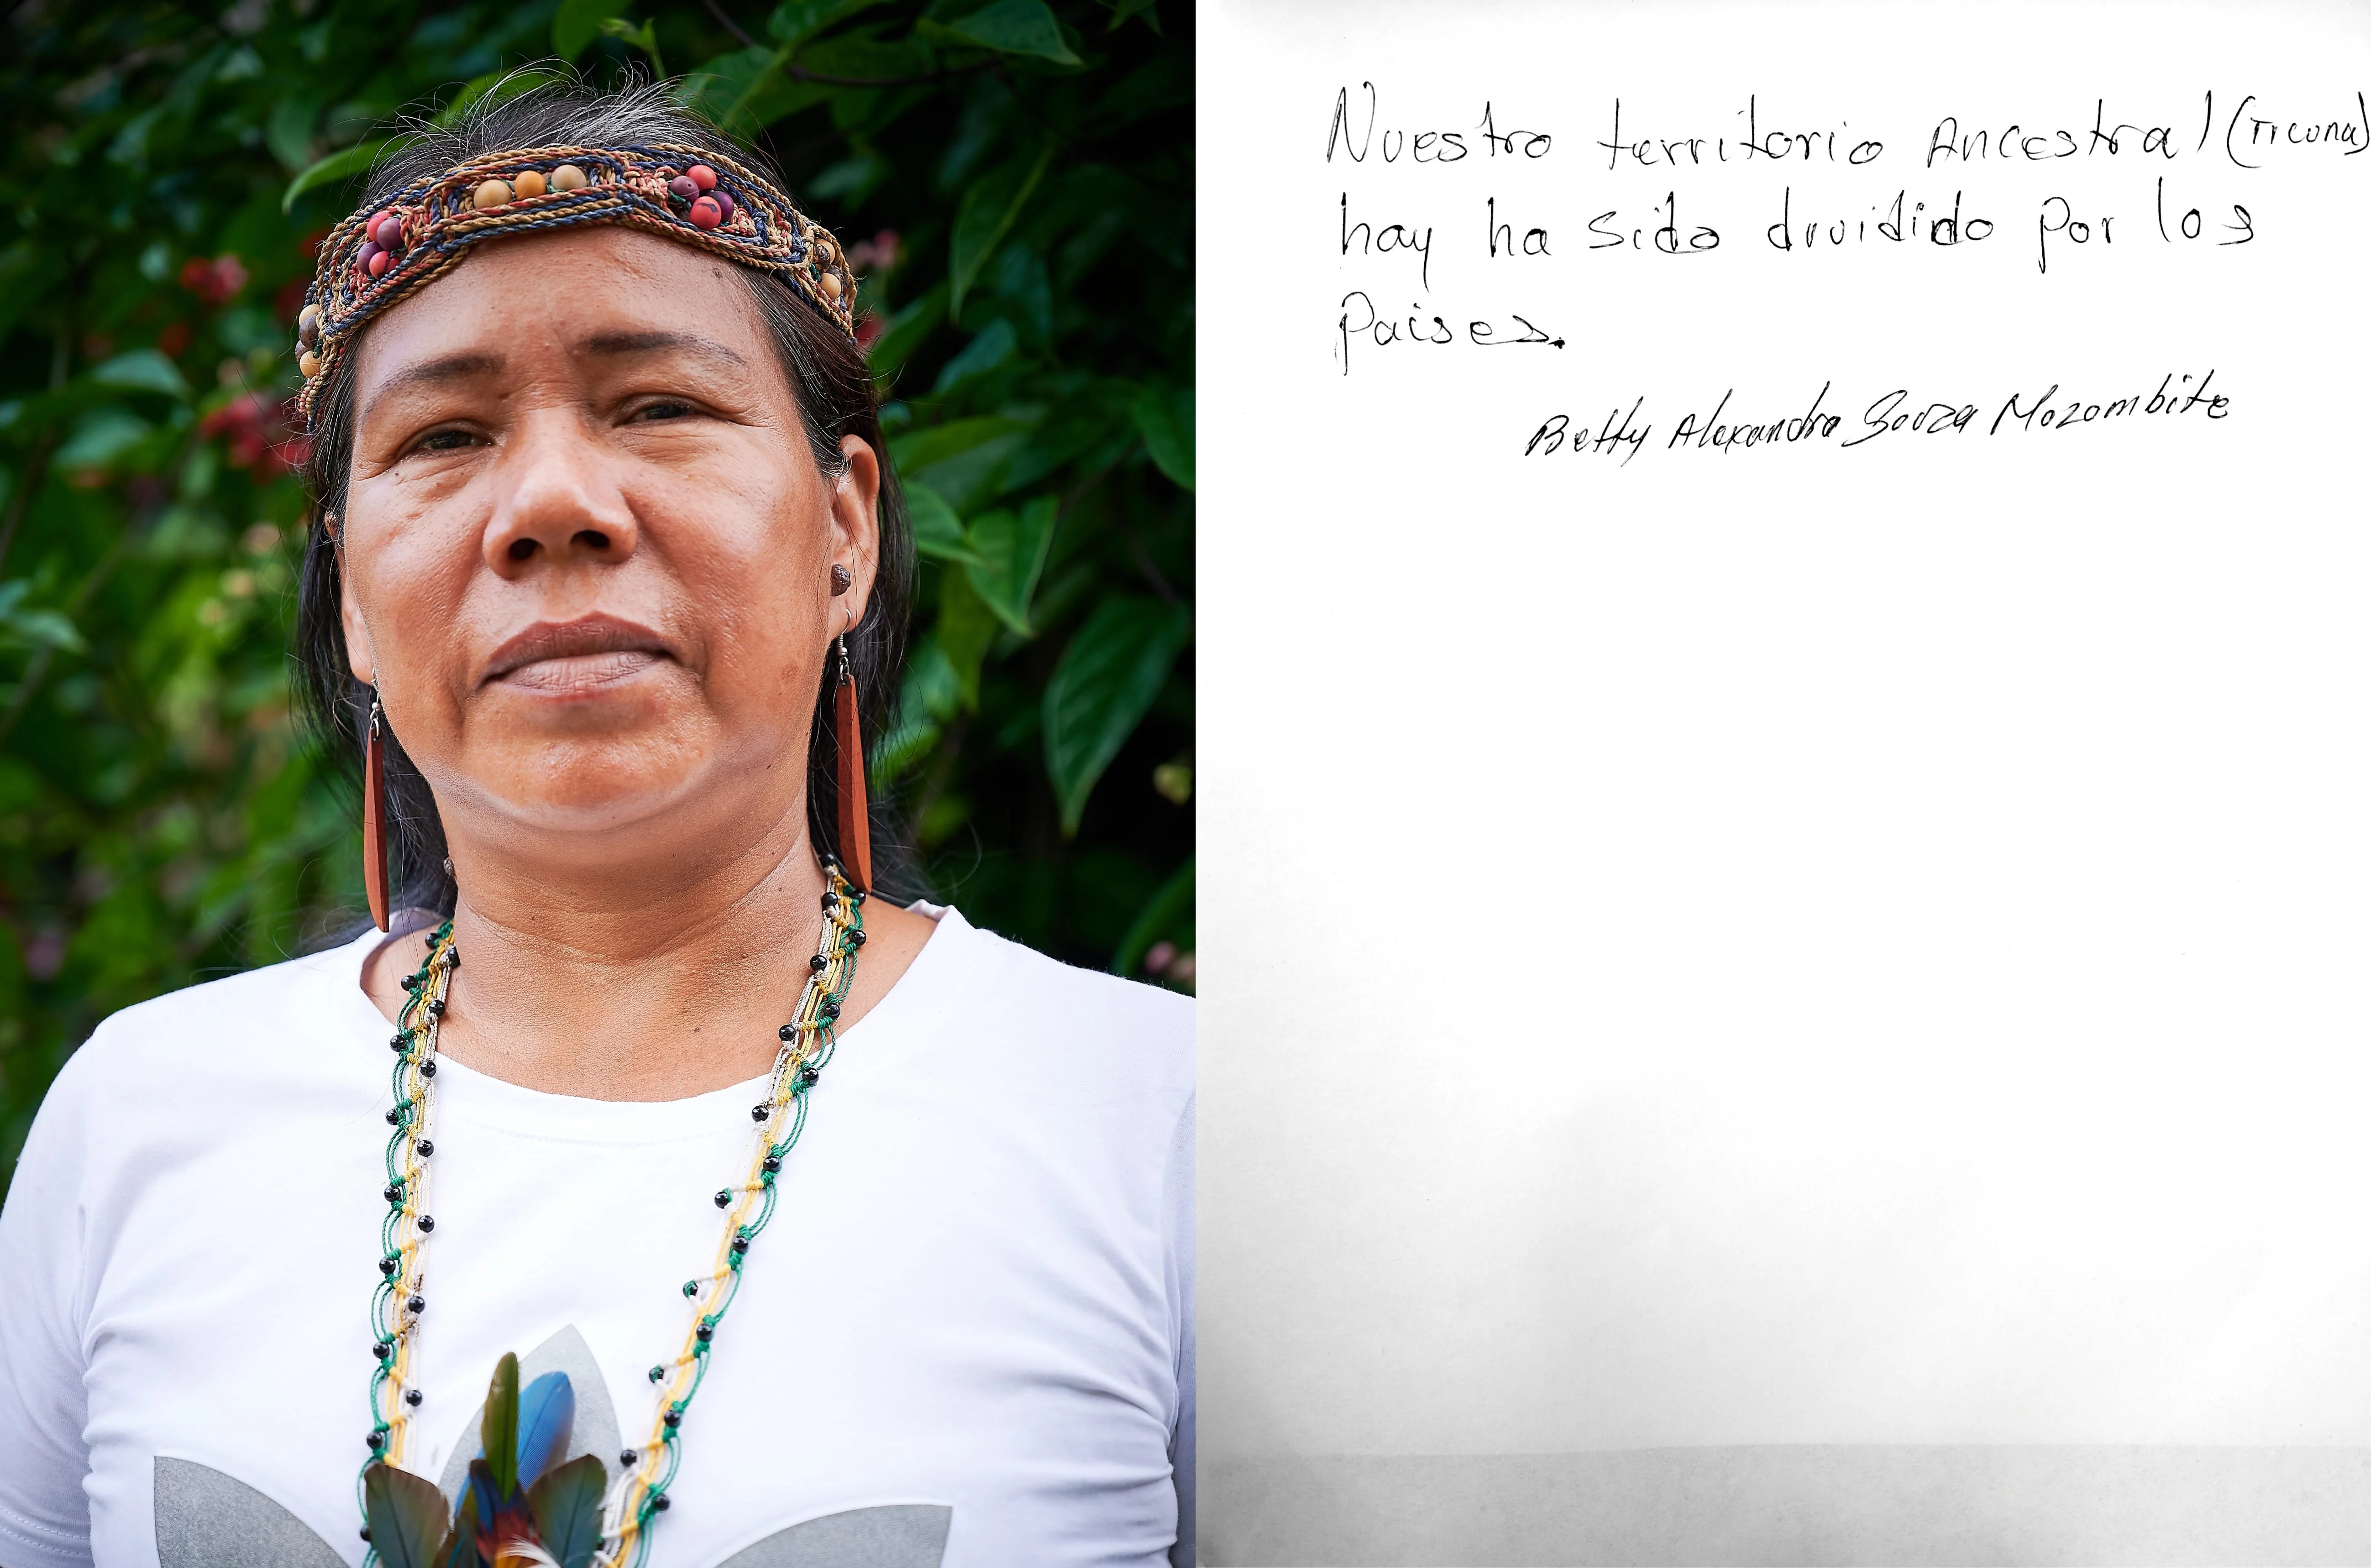 Nuestro territorio Ancestral (Ticuna)
hay ha sido dividido por los
paises.
Betty Alexandra Souza Mozombite